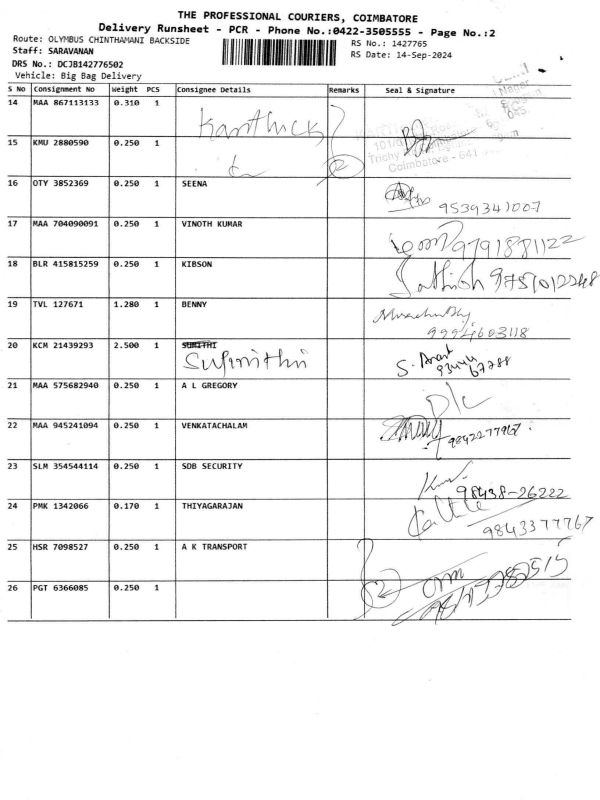 THE PROFESSIONAL COURIERS, COIMBATORE
Delivery Runsheet - PCR - Phone No.:0422-3505555 - Page No.:2
Route: OLYMBUS CHINTHAMANI BACKSIDE RS No.: 1427765
Staff: SARAVANAN RS Date: 14-Sep-2024
DRS No.: DCJB142776502
Vehicle: Big Bag Delivery
S No Consignment No Weight PCS Consignee Details Remarks Seal & Signature
14 MAA 867113133 0.310 1 Karthick
15 KMU 2880590 0.250 1 2
Trichy
Coimbatore - 641
16 OTY 3852369 0.250 1 SEENA 9539341007
17 MAA 704090091 0.250 1 VINOTH KUMAR 9791881122
18 BLR 415815259 0.250 1 KIBSON Sathish
19 TVL 127671 1.280 1 BENNY 9994603118
20 KCM 21439293 2.500 1 SUMITHI
Sufinithii S. Anat 93444 67788
21 MAA 575682940 0.250 1 A L GREGORY D/c
22 MAA 945241094 0.250 1 VENKATACHALAM 9842277967
23 SLM 354544114 0.250 1 SDB SECURITY 98438-26222
24 PMK 1342066 0.170 1 THIYAGARAJAN 9843377767
25 HSR 7098527 0.250 1 A K TRANSPORT
26 PGT 6366085 0.250 1 2